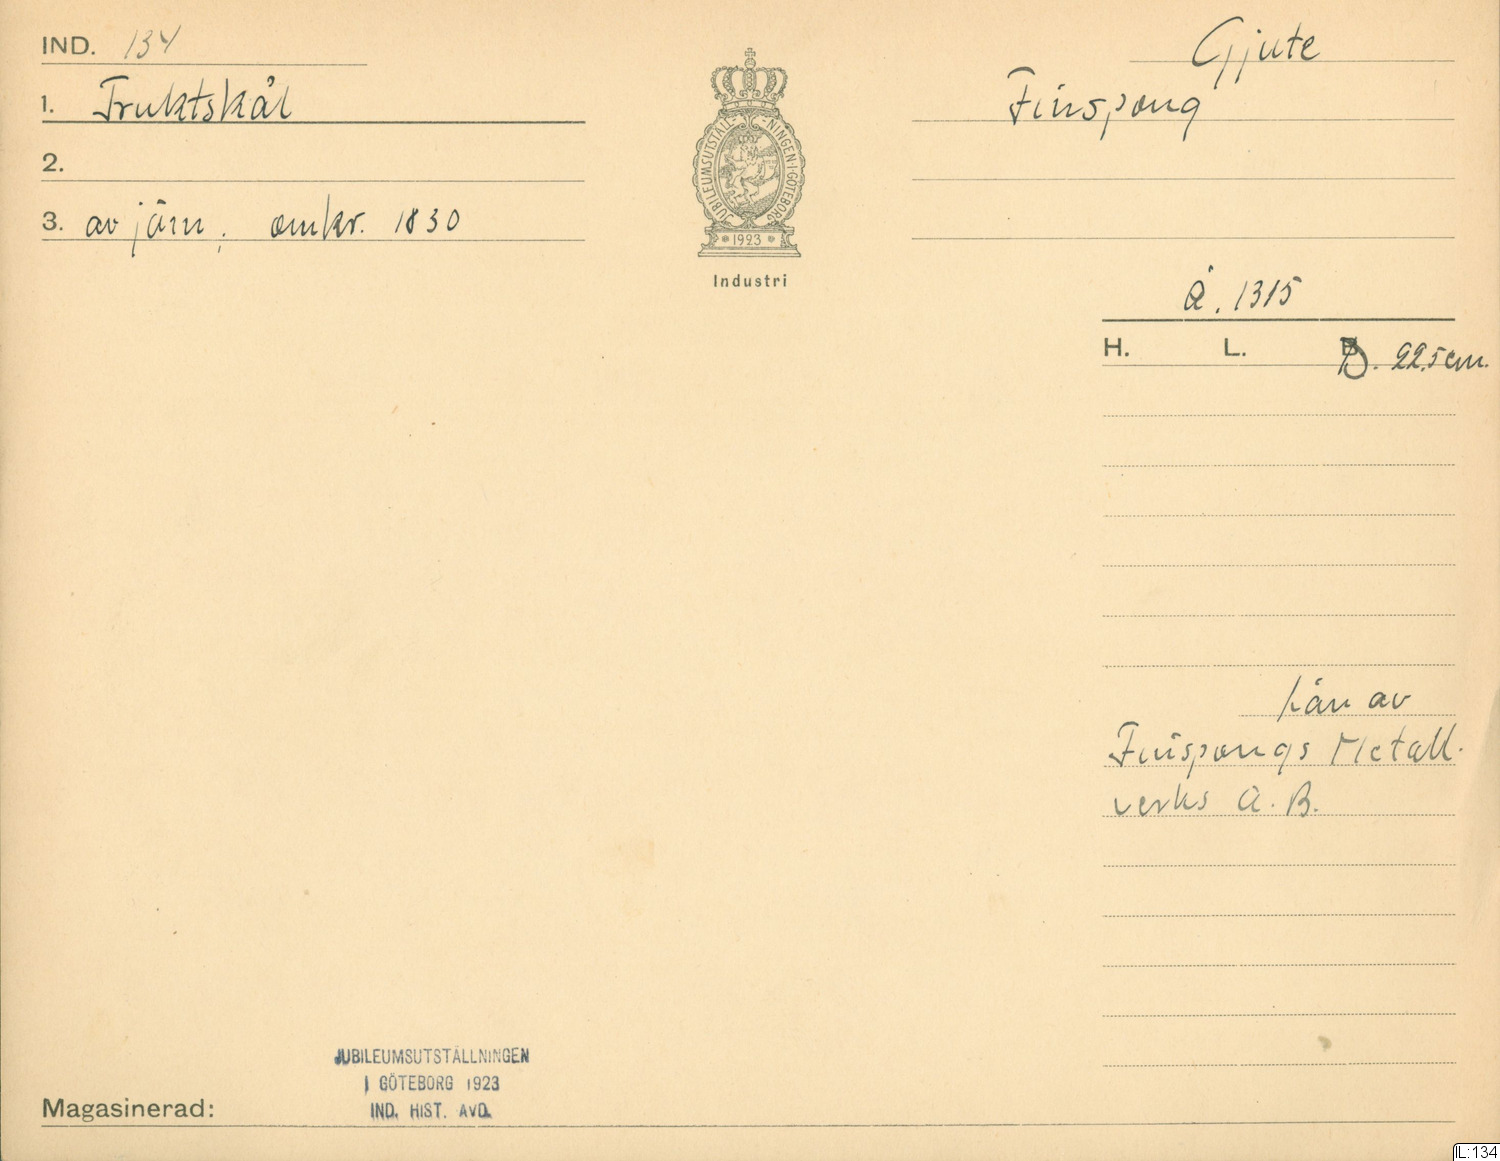 IND. 134
1. Fruktskål
2.
3. av järn, omkr. 1830
JUBILEUMSUTSTÄLLNINGEN I GÖTEBORG
1923
Industri
Gjute
Finspong
Å. 1315
H. L. D. 22,5 cm.
Lån av
Finspongs Metall-
verks A. B.
JUBILEUMSUTSTÄLLNINGEN
I GÖTEBORG 1923
IND. HIST. AVD.
Magasinerad:
IL:134